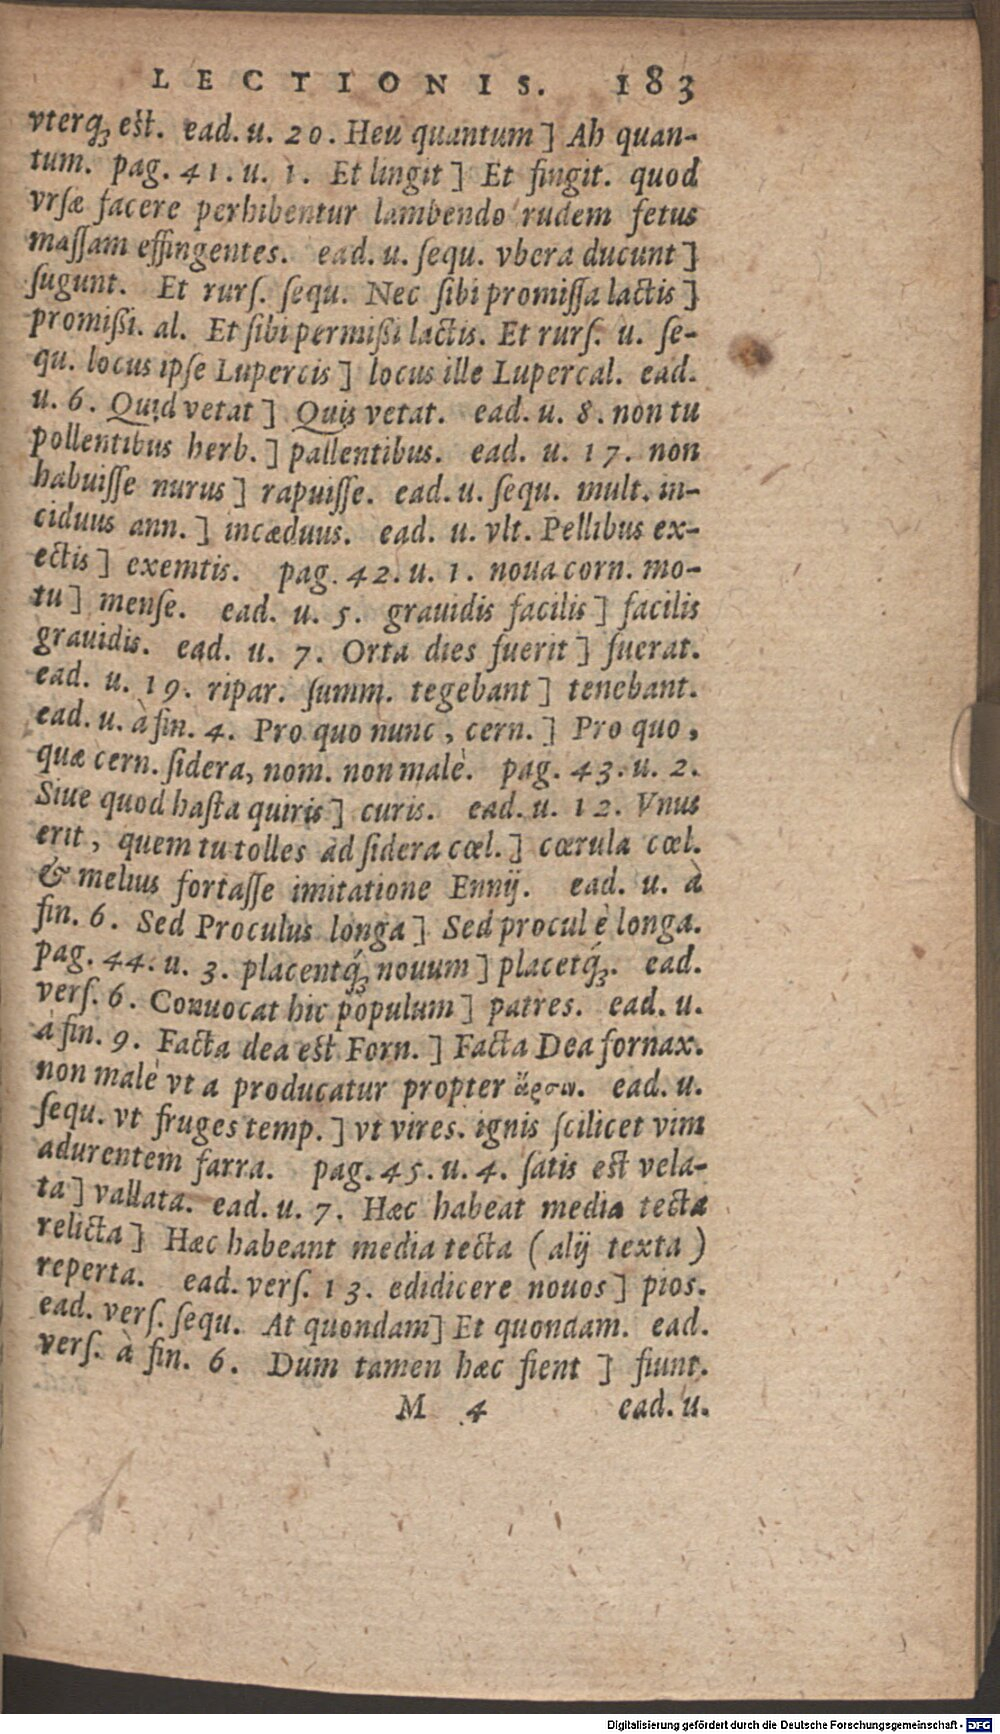 LECTIONIS. 183
vterq́ꝫ est. ead. u. 20. Heu quantum] Ah quan-
tum. pag. 41. u. 1. Et lingit] Et fingit. quod
vrſæ facere perhibentur lambendo rudem fetus
maſſam effingentes. ead. u. ſequ. vbera ducunt]
ſugunt. Et rurſ. ſequ. Nec ſibi promiſſa lactis]
promißi. al. Et ſibi permißi lactis. Et rurſ. u. ſe-
qu. locus ipſe Lupercis] locus ille Lupercal. ead.
u. 6. Quid vetat] Quis vetat. ead. u. 8. non tu
pollentibus herb.] pallentibus. ead. u. 17. non
habuiſſe nurus] rapuiſſe. ead. u. ſequ. mult. in-
ciduus ann.] incæduus. ead. u. vlt. Pellibus ex-
ectis] exemtis. pag. 42. u. 1. noua corn. mo-
tu] menſe. ead. u. 5. grauidis facilis] facilis
grauidis. ead. u. 7. Orta dies fuerit] fuerat.
ead. u. 19. ripar. ſumm. tegebant] tenebant.
ead. u. à fin. 4. Pro quo nunc, cern.] Pro quo,
quæ cern. ſidera, nom. non malè. pag. 43. u. 2.
Siue quod haſta quiris] curis. ead. u. 12. Vnus
erit, quem tu tolles ad ſidera cœl.] cœrula cœl.
& melius fortaſſe imitatione Ennij. ead. u. à
fin. 6. Sed Proculus longa] Sed procul è longa.
pag. 44. u. 3. placentq́ꝫ nouum] placetq́ꝫ. ead.
verſ. 6. Conuocat hic populum] patres. ead. u.
à fin. 9. Facta dea est Forn.] Facta Dea fornax.
non malè vt a producatur propter ἄρσιν. ead. u.
ſequ. vt fruges temp.] vt vires. ignis ſcilicet vim
adurentem farra. pag. 45. u. 4. ſatis est vela-
ta] vallata. ead. u. 7. Hæc habeat media tecta
relicta] Hæc habeant media tecta (alij texta)
reperta. ead. verſ. 13. edidicere nouos] pios.
ead. verſ. ſequ. At quondam] Et quondam. ead.
verſ. à fin. 6. Dum tamen hæc fient] fiunt.
M 4 ead. u.
Digitalisierung gefördert durch die Deutsche Forschungsgemeinschaft - DFG